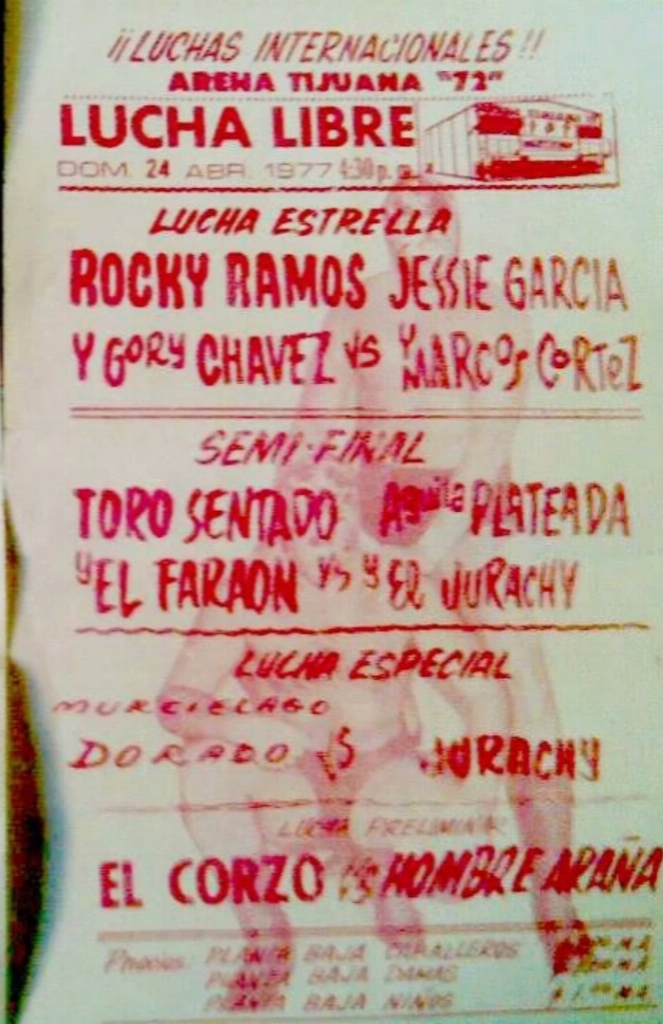 ¡¡LUCHAS INTERNACIONALES!!
ARENA TIJUANA "72"
LUCHA LIBRE
DOM. 24 ABR. 1977 4:30 p.
LUCHA ESTRELLA
ROCKY RAMOS JESSIE GARCIA
Y GORY CHAVEZ VS Y MARCOS CORTEZ
SEMI-FINAL
TORO SENTADO AGUILA PLATEADA
Y EL FARAON VS Y EL JURACHY
LUCHA ESPECIAL
MURCIELAGO
DORADO VS JURACHY
LUCHA PRELIMINAR
EL CORZO VS HOMBRE ARAÑA
Precios: PLANTA BAJA CABALLEROS
PLANTA BAJA DAMAS
PLANTA BAJA NIÑOS